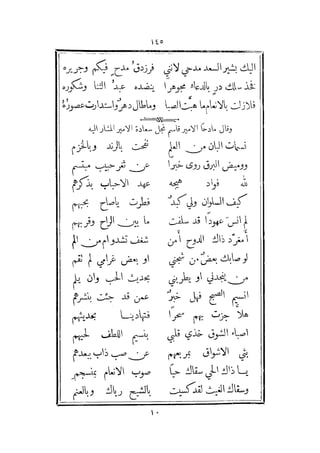 ١٤٥
اليك بشير السعد مدحي لانني فرزدقُ مدحٍ فيكم وجريره
فخذ سلك درٍ بالدعاء مجوهرا ينضده عبدُ الثنا وشكوره
فلا زلت بالانعام ما هبَّت الصبا وما طال دهرٌ واستدارت عصورهُ
وقال مادحًا الامير قاسم نجل سعادة الامير المشار اليه
نسمات البان من العلمِ نفحت بالرند وبالخزم
ووميض البرق روى خبرًا عن ثغر حبيب مبتسم
لله فواد هيجه عهد الاحباب بذكرهم
كيف السلوان ولي كبدٌ فطرت ياصاح بحبهم
لم انسَ عهودًا قد سلفت ما بين الراح وقربهم
أمغرّد ذاك الدوح أمن شغف تشدو ام من الم
لو صابك بعضٌ من شجني او بعض غرامي لم تقم
من ينجدني او يطربني بحديث الحب وان يلم
انسيم الصبح فهل خبرٌ عمن قد جئت بنشرهم
هلاَّ جزت بهم سحرًا فتهادينا بحديثهم
اصباء الشوق خذي قلبي بنسيم اللطف لحيهم
بثي الاشواق بمربعهم عن صب ذاب ببعدهم
يا ذاك الحي سقاك حيًا صوب الانعام بمنسجم
وسقاك الغيث لقد كسيت بالشيح رباك وبالعنم
١٠